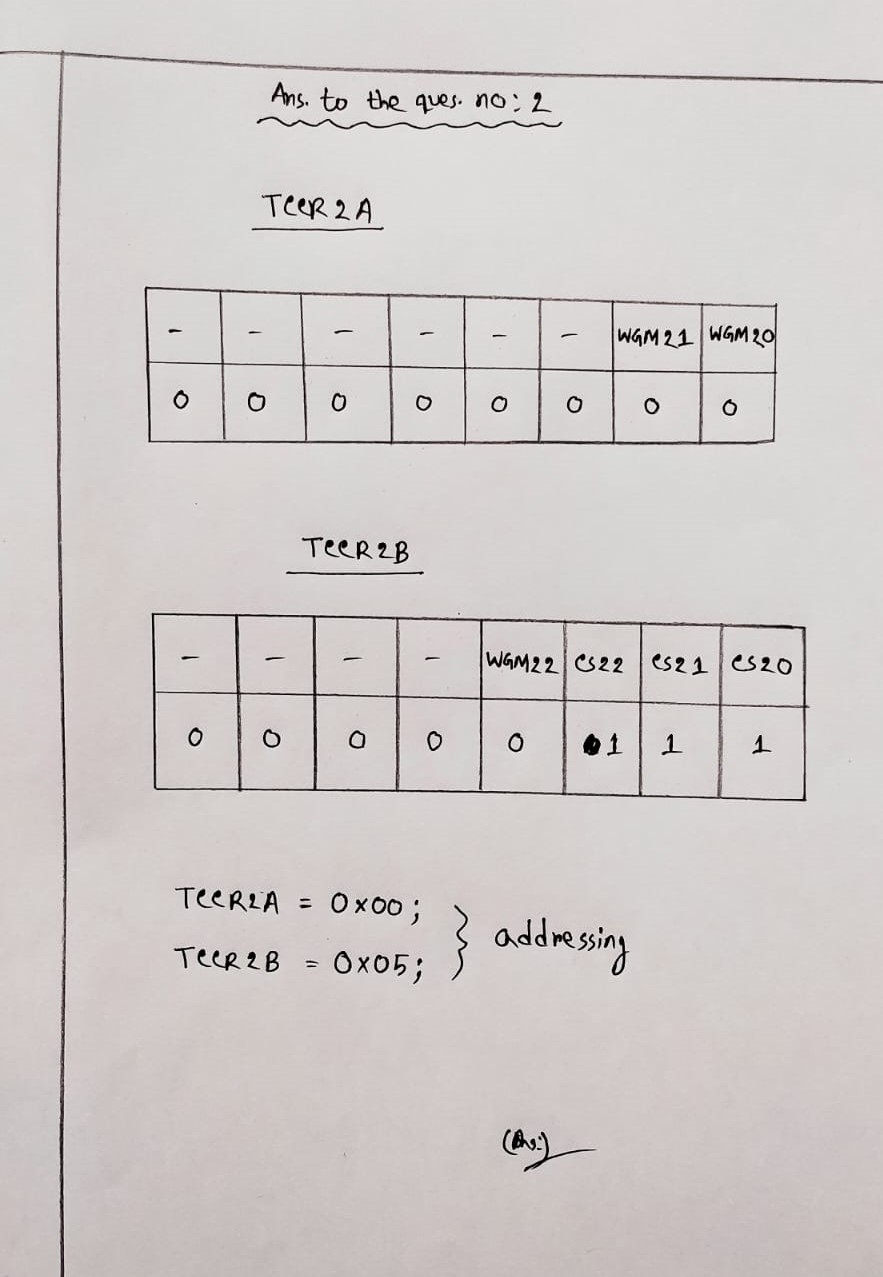 Ans. to the ques. no: 2
TCCR2A
- - - - - - WGM21 WGM20
0 0 0 0 0 0 0 0
TCCR2B
- - - - WGM22 CS22 CS21 CS20
0 0 0 0 0 1 1 1
TCCR2A = 0x00; } addressing
TCCR2B = 0x05;
(Ans:)